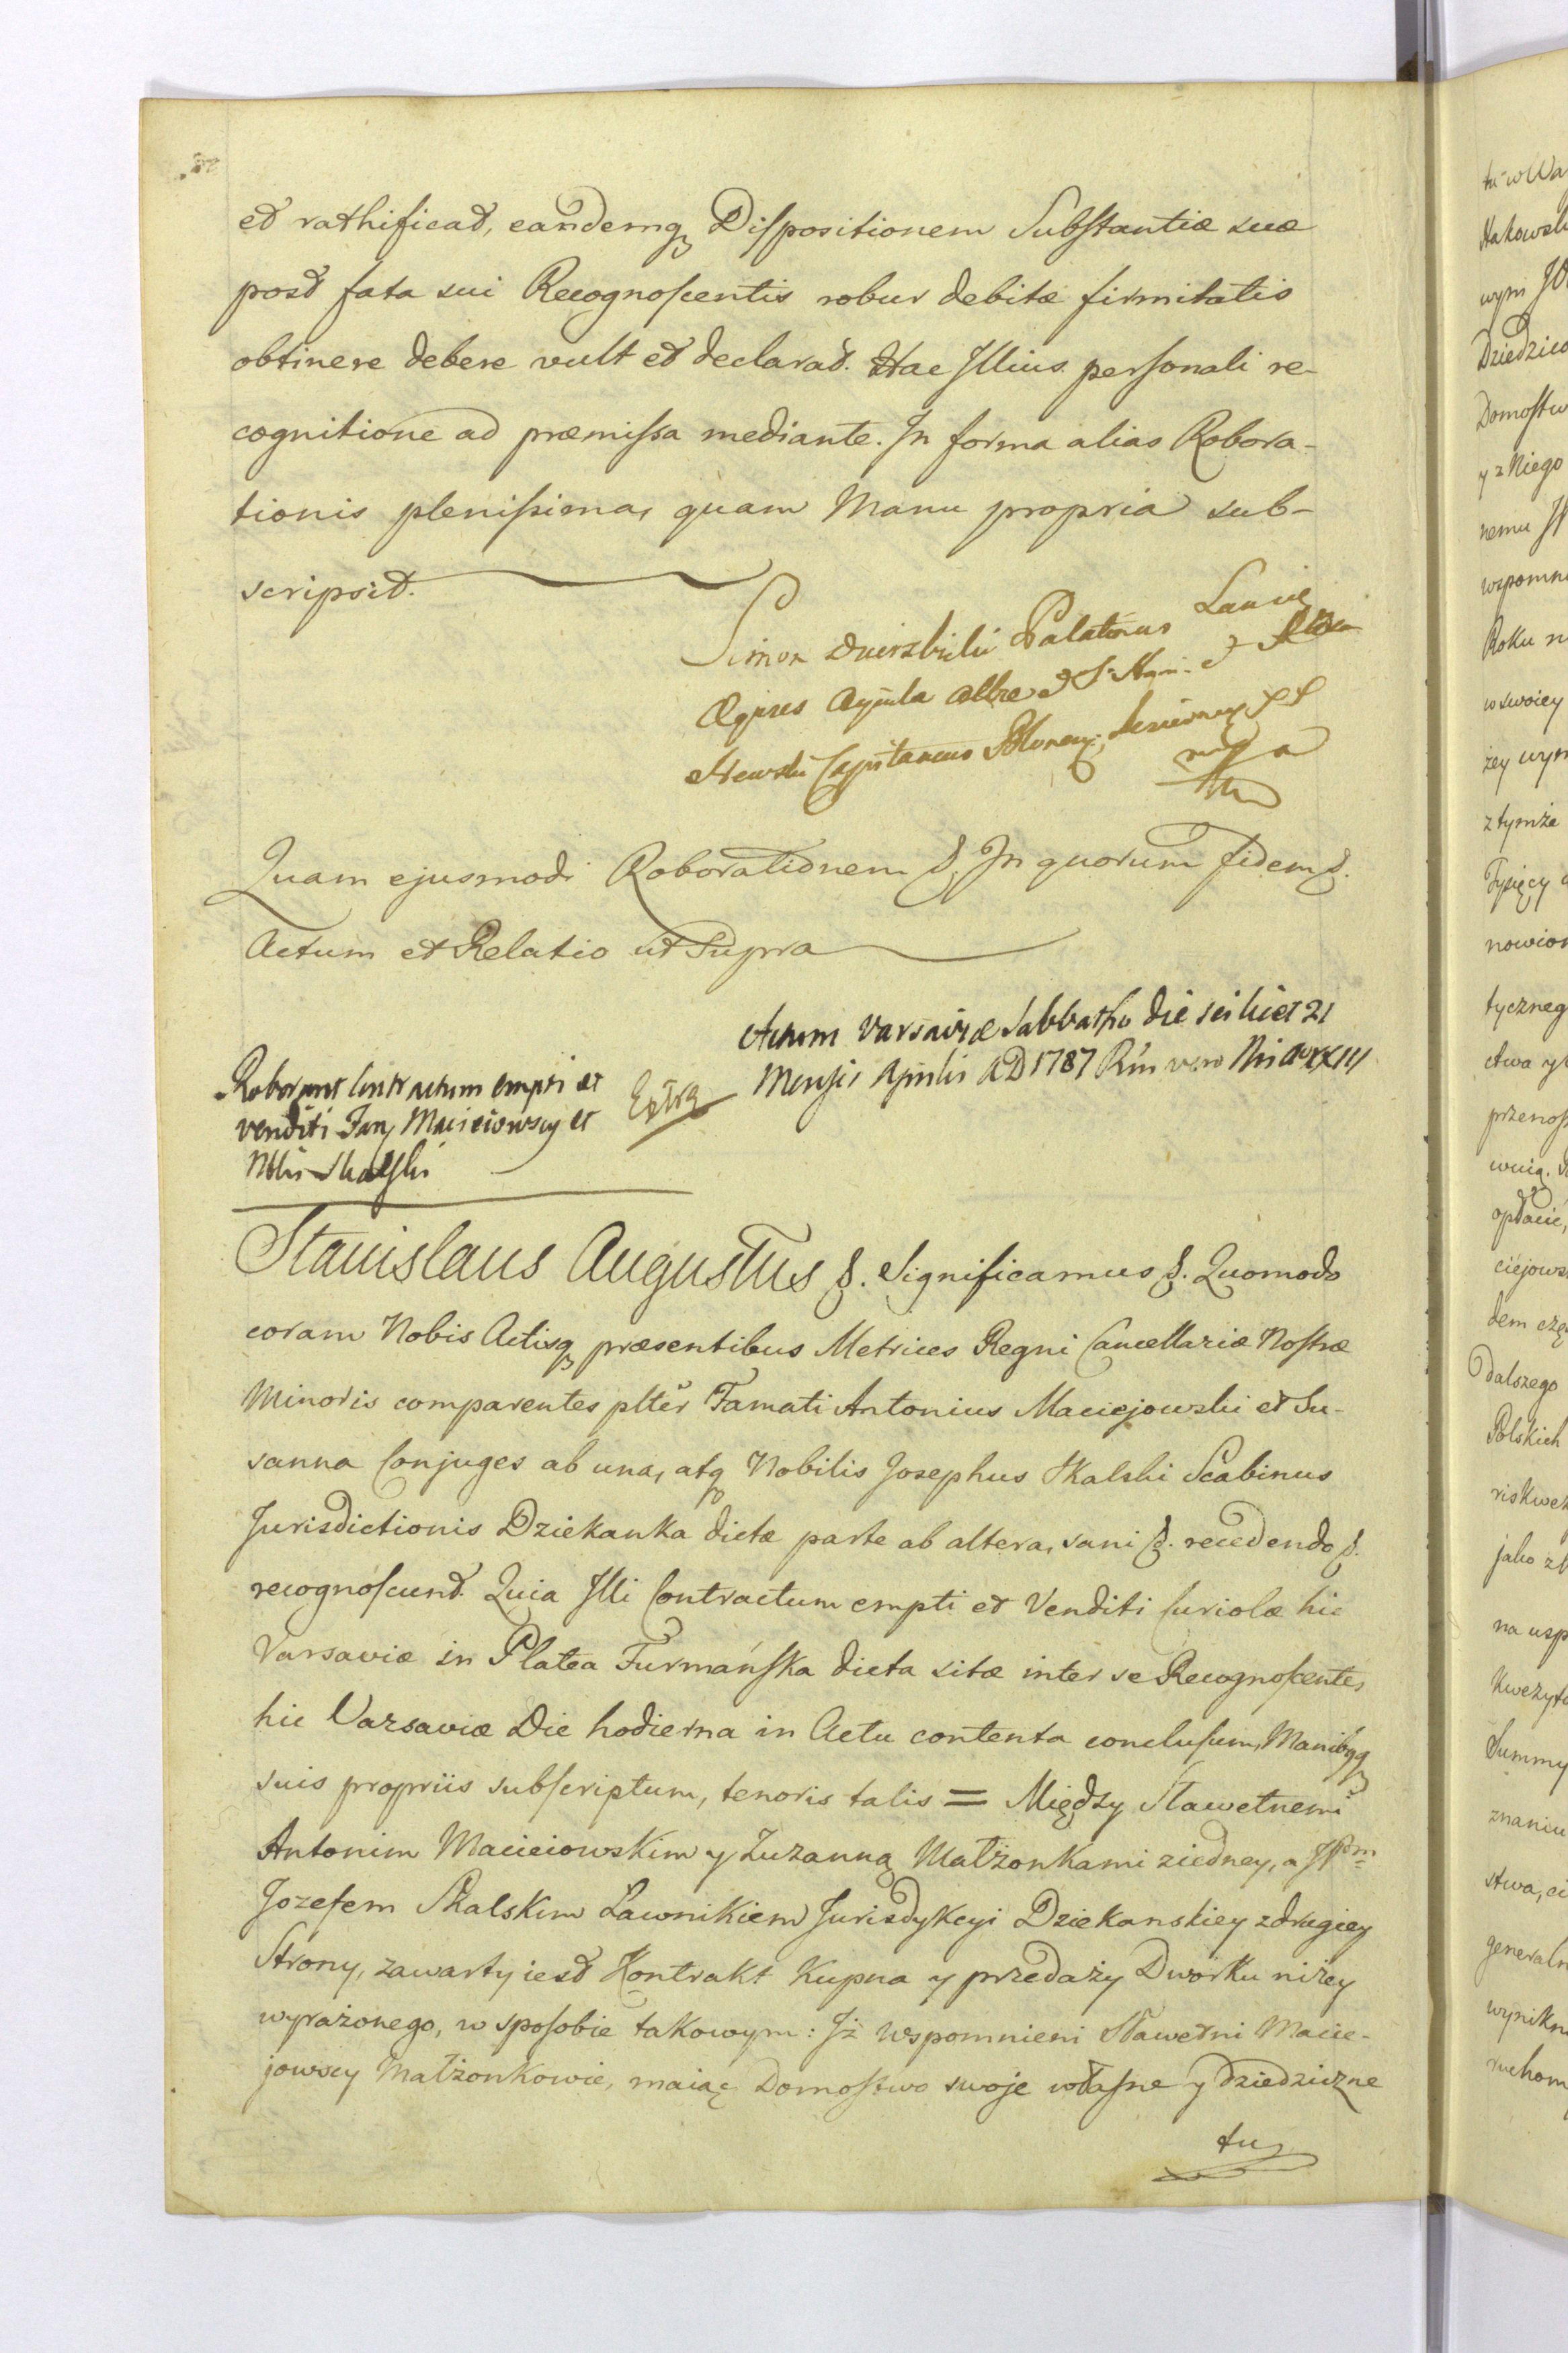 et rathificat, eandemq Dispositionem Substantiæ suæ
post fata sui Recognoscentis robur debitæ firmitatis
obtinere debere vult et declarat. Hac Illius personali re-
cognitione ad præmissa mediante. In forma alias Robora-
tionis plenissima, quam Manu propria sub-
scripsit.
Simon Dzierzbicki Palatinus Lancić
Eques Aquila Albæ et S.
Capitaneus
mp
Quam ejusmodi Roborationem &. In quorum fidem &.
Actum et Relatio ut Supra
Actum Varsaviæ Sabbatho die scilicet 21
Mensis Aprilis AD 1787 Rni vero Nri Ao XXIII
Roborant Contractum empti et
venditi Fam Macieiowscy et
Nblis Skalski
Extra
Stanislaus Augustus &. Significamus &. Quomodo
coram Nobis Actisq præsentibus Metrices Regni Cancellariæ Nostræ
Minoris comparentes plter Famati Antonius Maciejowski et Su-
sanna Conjuges ab una, atq Nobilis Josephus Skalski Scabinus
Jurisdictionis Dziekanka dictæ parte ab altera, sani &. recedendo &.
recognoscunt. Quia Illi Contractum empti et Venditi Curiolæ hic
Varsaviæ in Platea Furmańska dicta sitæ inter se Recognoscentes
hic Varsaviæ Die hodierna in Actu contenta conclusum, Manibqq
suis propriis subscriptum, tenoris talis = Między Sławetnemi
Antonim Macieiowskim y Zuzanną Małżonkami ziedney, a JPm
Jozefem Skalskim Ławnikiem Jurisdykcyi Dziekanskiey zdrugiey
Strony, zawarty iest Kontrakt Kupna y przedaży Dworku niżey
wyrażonego, w sposobie takowym: Jż Wspomnieni Sławetni Macie-
jowscy Małżonkowie, maiąc Domostwo swoje własne y dziedziczne
tu
tu w Wa
wym
Dziedzicz
Domostw
y z Niego
nemu
wspomni
Roku
wswoiey
żey wyr
z tymże
Tysięcy
nowion
tyczneg
przenos
opłacić,
ciejows
dem
dalszego
Polskich
jako
na
Kwezyt
Summy
znaniu
stwa,
general
wynikn
ruchom